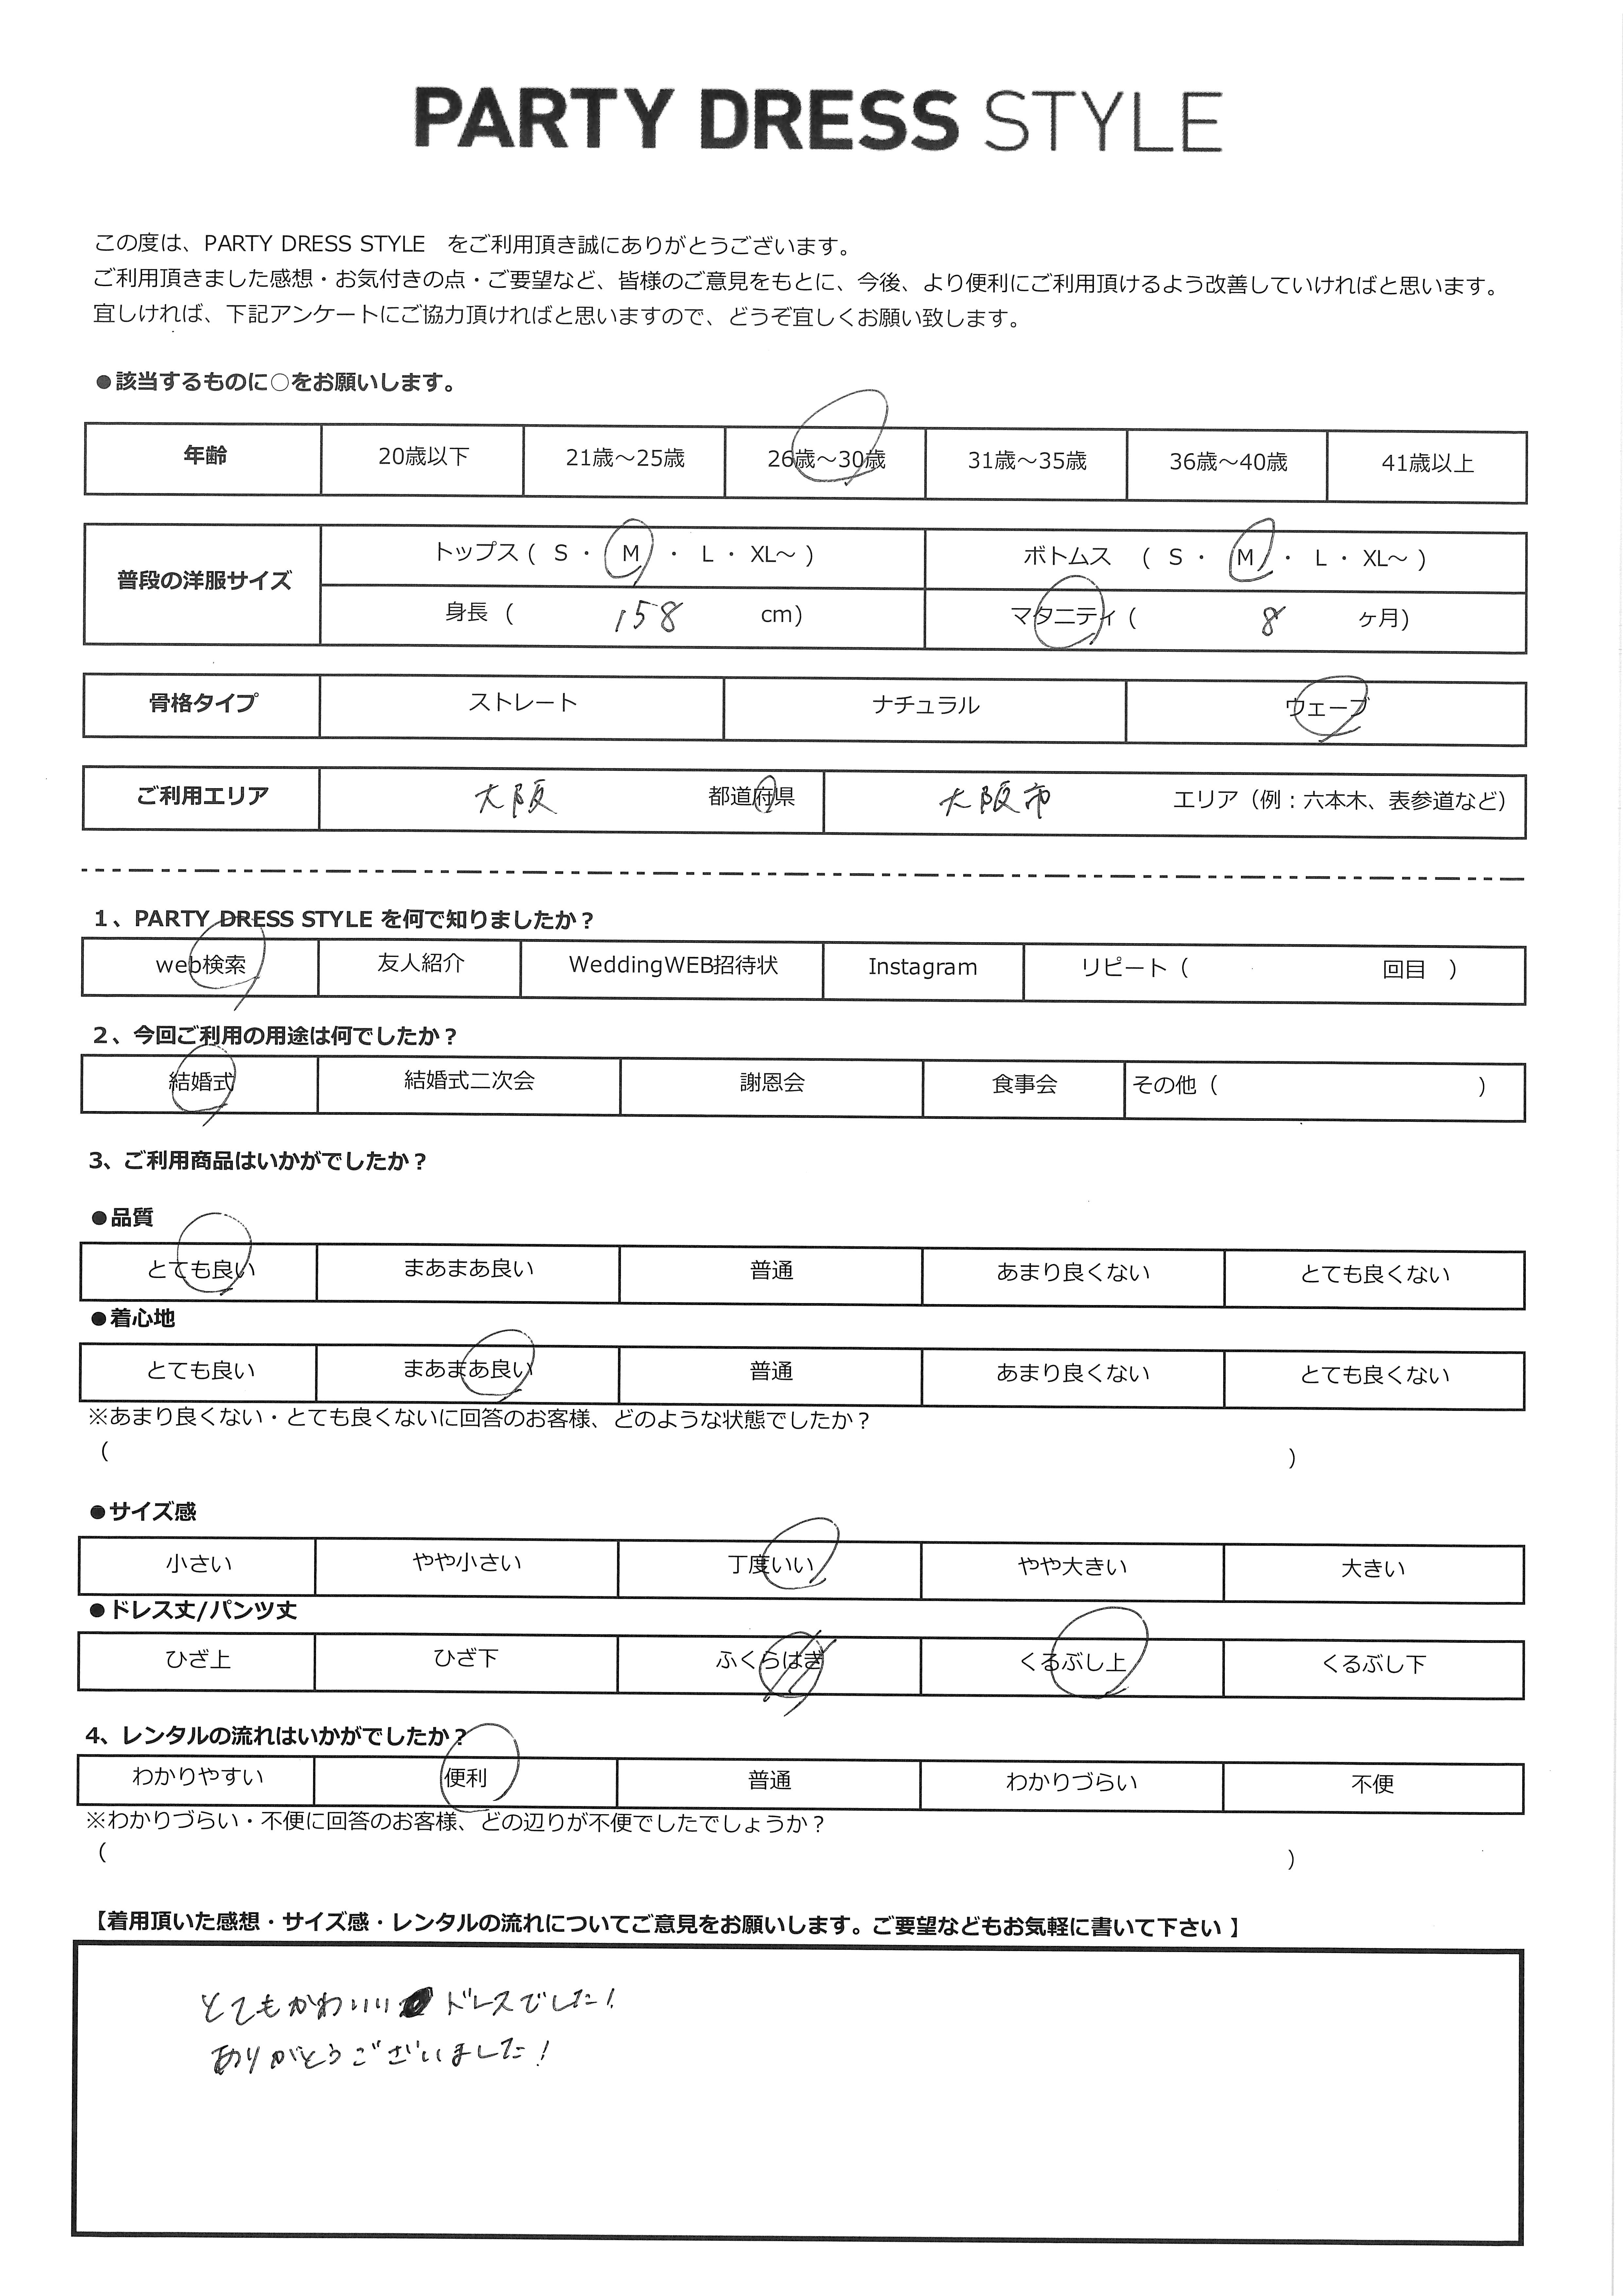 PARTY DRESS STYLE
この度は、PARTY DRESS STYLE　をご利用頂き誠にありがとうございます。
ご利用頂きました感想・お気付きの点・ご要望など、皆様のご意見をもとに、今後、より便利にご利用頂けるよう改善していければと思います。
宜しければ、下記アンケートにご協力頂ければと思いますので、どうぞ宜しくお願い致します。
●該当するものに○をお願いします。
年齢 20歳以下 21歳～25歳 26歳～30歳 31歳～35歳 36歳～40歳 41歳以上
普段の洋服サイズ トップス ( S ・ M ・ L ・ XL～ ) ボトムス ( S ・ M ・ L ・ XL～ )
身長 ( 158 cm) マタニティ ( 8 ヶ月)
骨格タイプ ストレート ナチュラル ウェーブ
ご利用エリア 大阪 都道府県 大阪市 エリア（例：六本木、表参道など）
1、PARTY DRESS STYLE を何で知りましたか？
web検索 友人紹介 WeddingWEB招待状 Instagram リピート（ 回目 ）
2、今回ご利用の用途は何でしたか？
結婚式 結婚式二次会 謝恩会 食事会 その他（ ）
3、ご利用商品はいかがでしたか？
●品質
とても良い まあまあ良い 普通 あまり良くない とても良くない
●着心地
とても良い まあまあ良い 普通 あまり良くない とても良くない
※あまり良くない・とても良くないに回答のお客様、どのような状態でしたか？
（ ）
●サイズ感
小さい やや小さい 丁度いい やや大きい 大きい
●ドレス丈/パンツ丈
ひざ上 ひざ下 ふくらはぎ くるぶし上 くるぶし下
4、レンタルの流れはいかがでしたか？
わかりやすい 便利 普通 わかりづらい 不便
※わかりづらい・不便に回答のお客様、どの辺りが不便でしたでしょうか？
（ ）
【着用頂いた感想・サイズ感・レンタルの流れについてご意見をお願いします。ご要望などもお気軽に書いて下さい 】
とてもかわいい ドレスでした！
ありがとうございました！